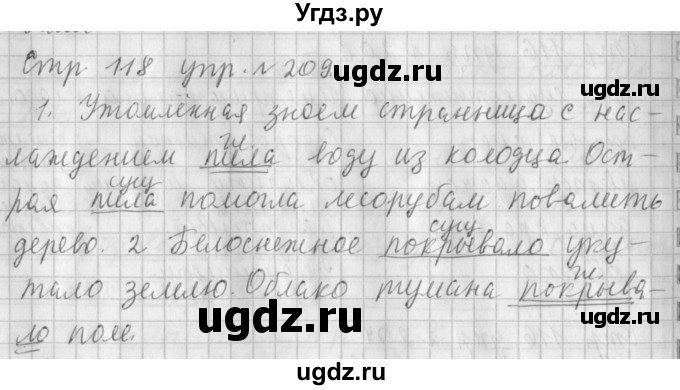 Угдз.ру
Стр. 118 упр. № 209.
1. Утомлённая зноем странница с нас-
гл.
лаждением пила воду из колодца. Ост-
сущ.
рая пила помогла лесорубам повалить
сущ.
дерево. 2 Белоснежное покрывало уку-
гл.
тало землю. Облако тумана покрыва-
ло поле.
ugdz.ru
ugdz.ru
ugdz.ru
ugdz.ru
ugdz.ru